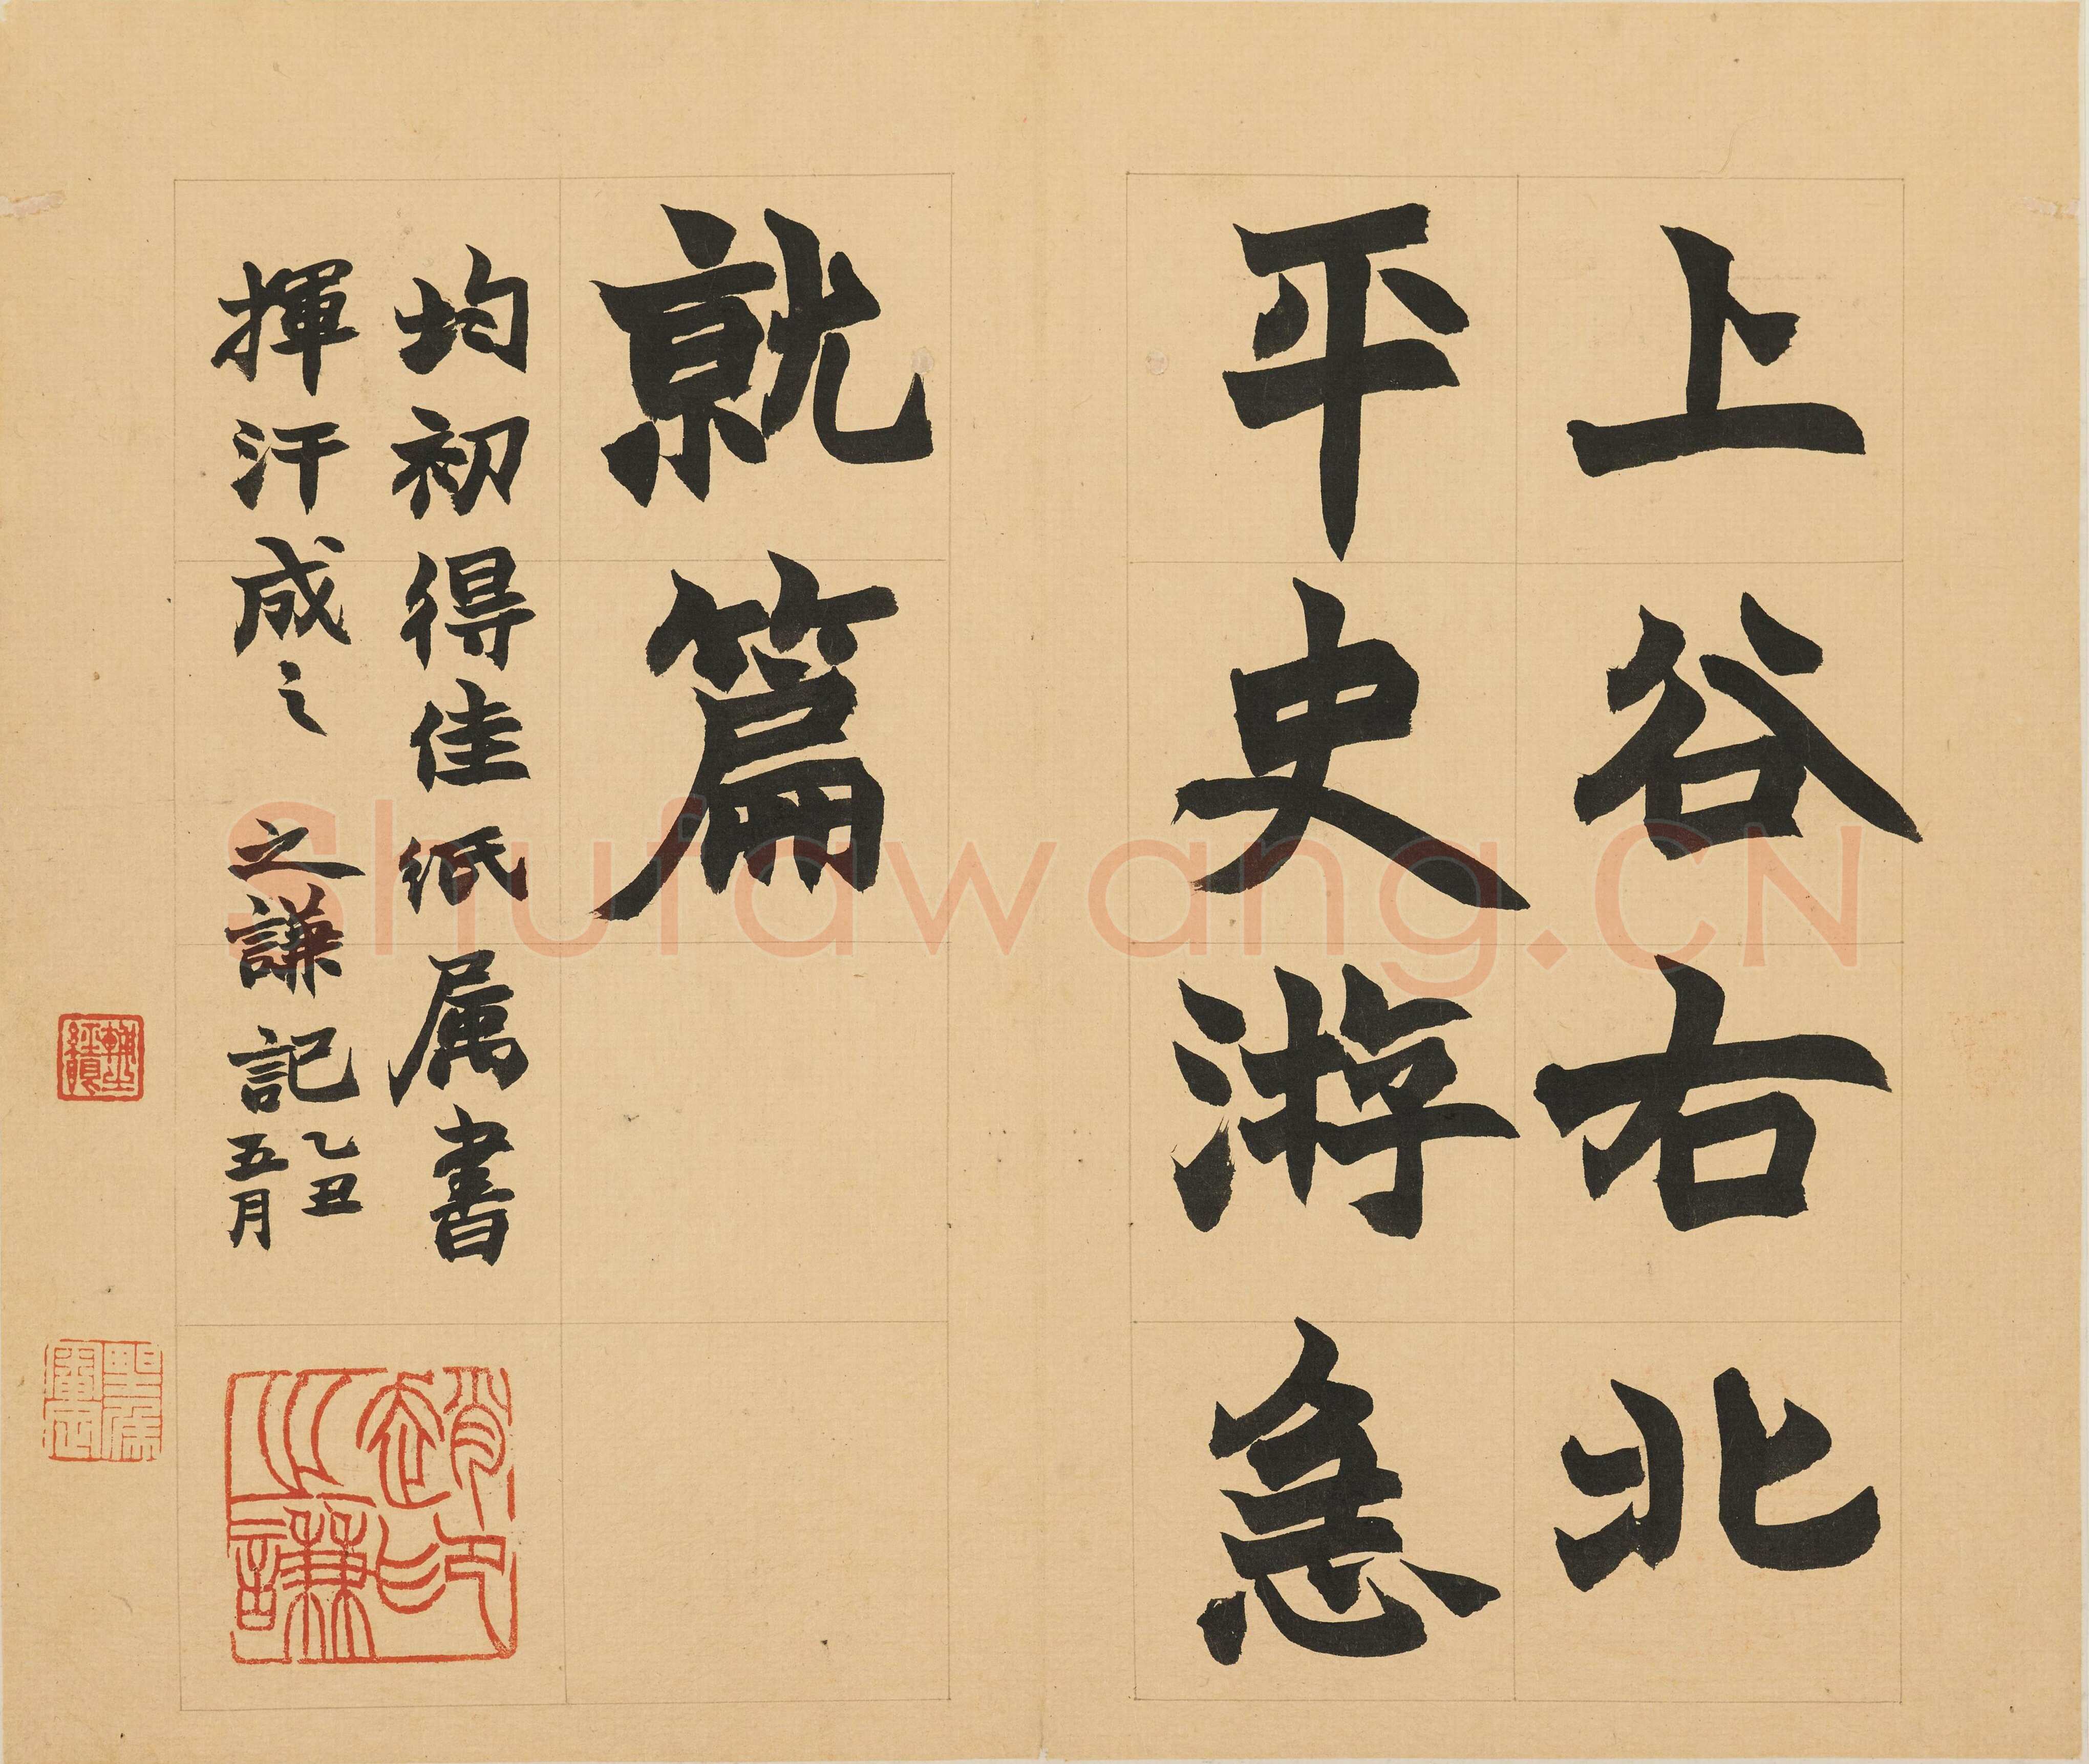 上谷右北
平史游急
就篇
均初得佳紙属書
揮汗成之 之謙記 乙丑
五月
趙之謙印
Shufawang.CN